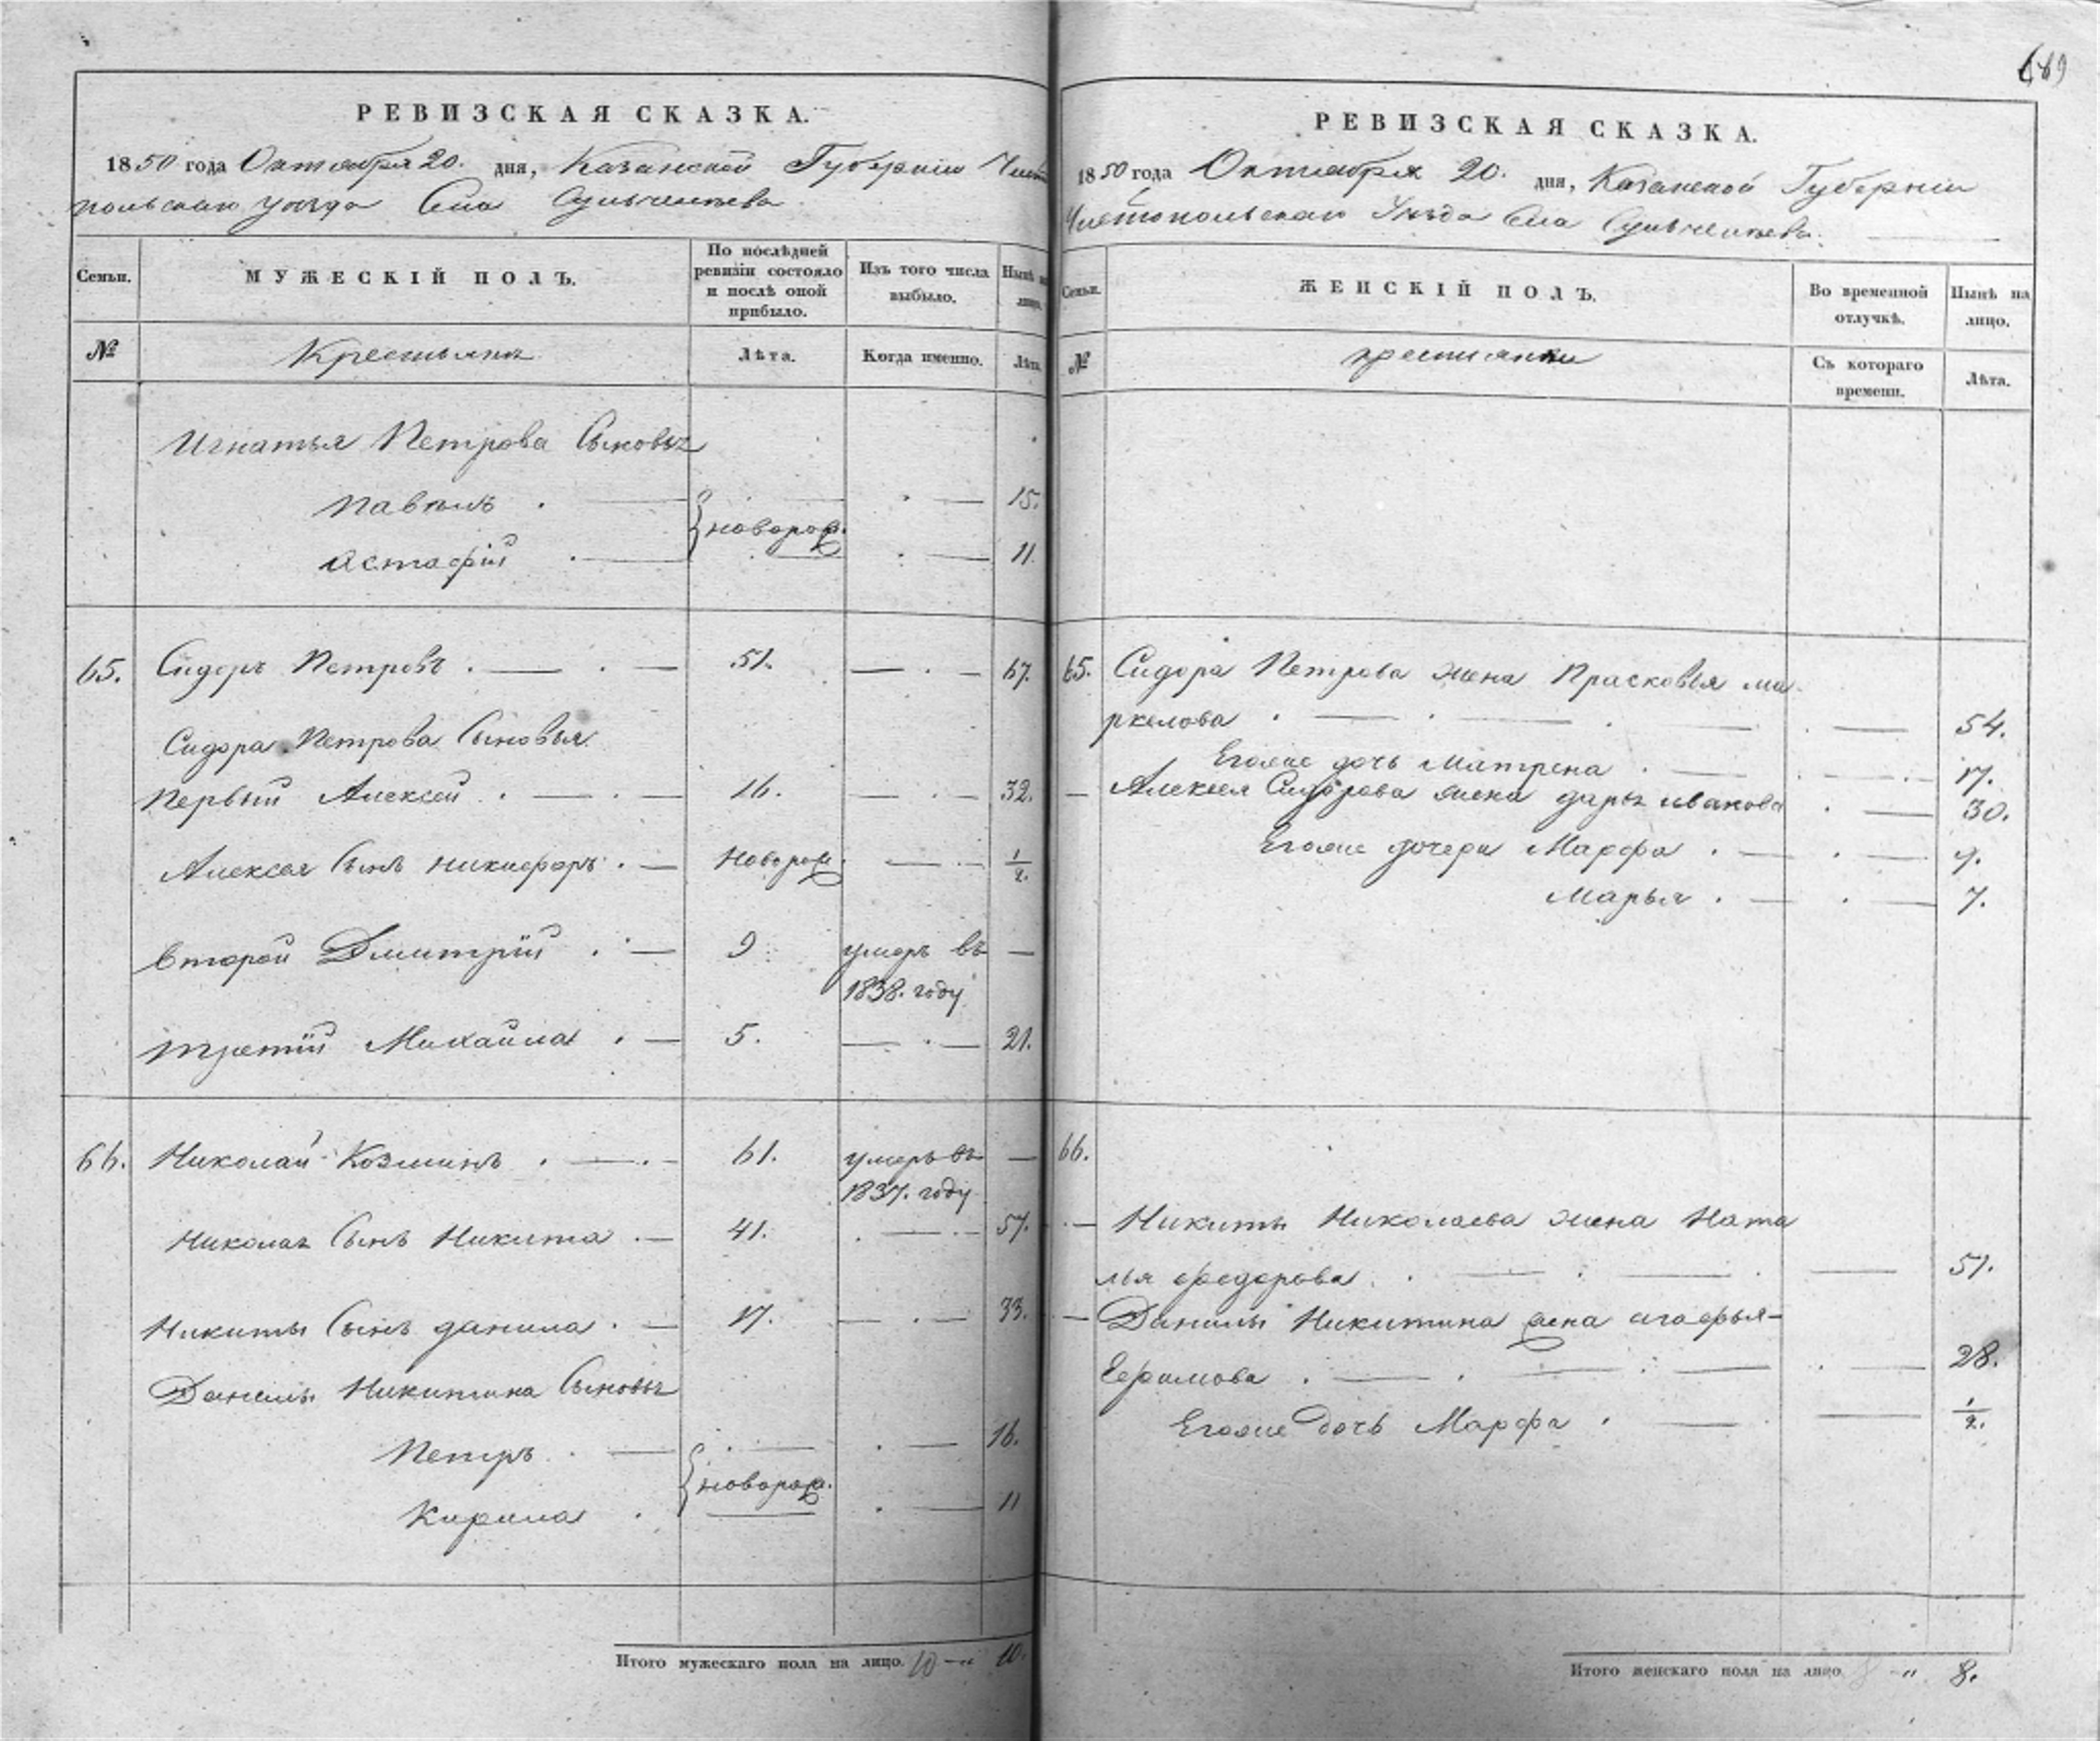 689
РЕВИЗСКАЯ СКАЗКА.
1850 года Октября 20. дня, Казанской Губернiи Чисто
польскаго уезда Села
Семьи.
МУЖЕСКIЙ ПОЛЪ.
По послѣдней
ревизiи состояло
и послѣ оной
прибыло.
Изъ того числа
выбыло.
Нынѣ на
лицо.
№
Крестьяна
Лѣта.
Когда именно.
Лѣта.
Игнатья Петрова Сыновья
Павелъ . — — 15.
новорож.
Астафiй . — — 11.
65. Сидоръ Петровъ . — . — 51. — . — 67.
Сидора Петрова Сыновья
Первый Алексей . — . — 16. — . — 32.
Алексея Сынъ никифоръ . — новорож. — . — 1/2.
второй Дмитрiй . — 9 умеръ въ —
1838. году
третiй Михайла . — 5. — . — 21.
66. Николай Козминъ . — . — 61. умеръ въ —
1837. году
Николая Сынъ Никита . — 41. . — . — 57.
Никиты Сынъ данила . — 17. — . — 33.
Данилы Никитина Сыновья
Петръ . — . — . — 16.
новорож.
Кирила . . — 11
Итого мужескаго пола на лицо. 10 — " 10.
РЕВИЗСКАЯ СКАЗКА.
1850 года Октября 20. дня, Казанской Губернiи
Чистопольскаго Уезда Села
Семьи.
ЖЕНСКIЙ ПОЛЪ.
Во временной
отлучкѣ.
Нынѣ на
лицо.
№
крестьянки
Съ котораго
времени.
Лѣта.
65. Сидора Петрова жена Прасковья ма-
ркелова . — . — . — . — 54.
Егоже дочь Матрена . — . — . 17.
— Алексея Сидорова жена дарья иванова . — 30.
Егоже дочери Марфа . — . — 9.
Марья . — . — 7.
66.
— Никиты Николаева жена Ната
лья федорова . . — . — . — 51.
— Данилы Никитина жена агафья-
Ефимова . — . — . — . — 28.
Егоже дочь Марфа . — . — 1/2.
Итого женскаго пола на лицо 8 — " 8.